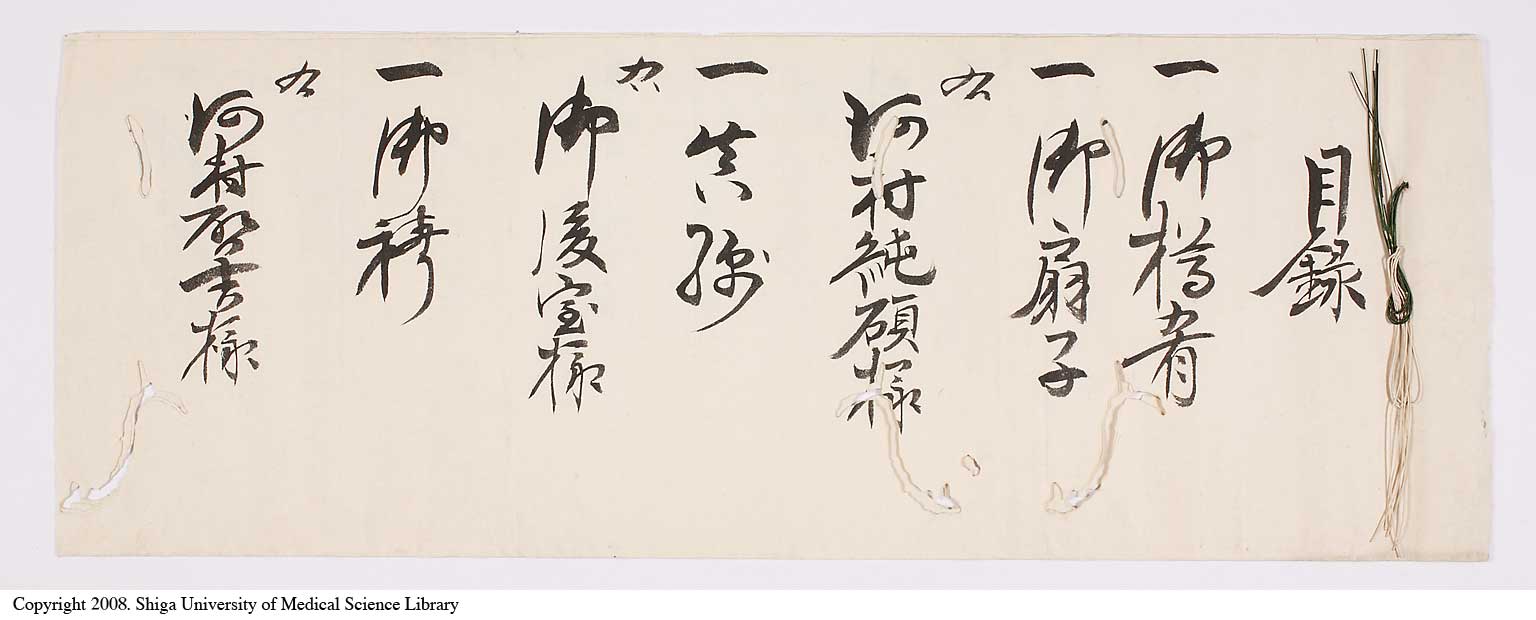 目録
一御樽肴
一御扇子
右
河村純碩様
一真綿
右
御後室様
一御袴
右
河村啓吉様
Copyright 2008. Shiga University of Medical Science Library